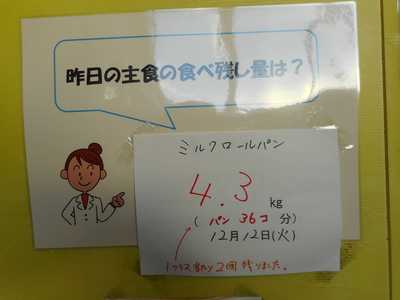 昨日の主食の食べ残し量は？
ミルクロールパン
4.3 kg
(パン 36コ 分)
12月12日(火)
1クラス当たり2個残りました。